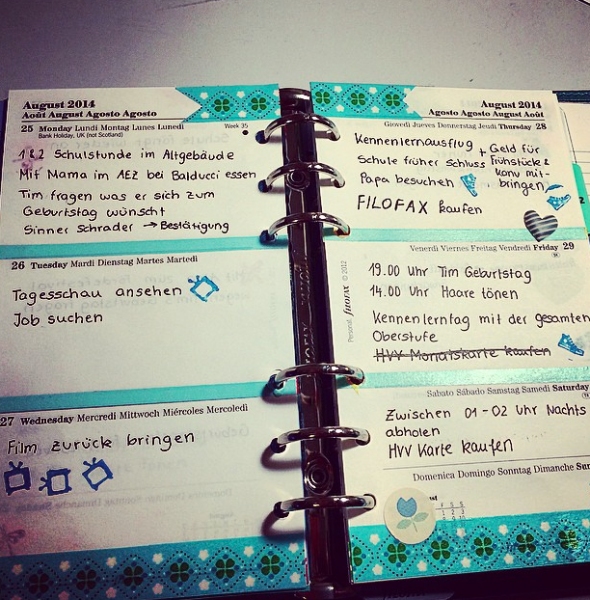 August 2014
Août August Agosto Agosto
25 Monday Lundi Montag Lunes Lunedì
Week 35
Bank Holiday, UK (not Scotland)
1 & 2 Schulstunde im Altgebäude
Mit Mama im AEZ bei Balducci essen
Tim fragen was er sich zum
Geburtstag wünscht
Sinner Schrader → Bestätigung
26 Tuesday Mardi Dienstag Martes Martedì
Tagesschau ansehen
Job suchen
27 Wednesday Mercredi Mittwoch Miércoles Mercoledì
Film zurück bringen
August 2014
Agosto Agosto August Août
Giovedì Jueves Donnerstag Jeudi Thursday 28
Kennenlernausflug + Geld für
Schule früher schluss Frühstück &
Papa besuchen kanu mit-
bringen
FILOFAX kaufen
Venerdì Viernes Freitag Vendredi Friday 29
19.00 Uhr Tim Geburtstag
14.00 Uhr Haare tönen
Kennenlerntag mit der gesamten
Oberstufe
HVV Monatskarte kaufen
Personal filofax © 2012
Sabato Sábado Samstag Samedi Saturday
Zwischen 01-02 Uhr Nachts
abholen
HVV Karte kaufen
Domenica Domingo Sonntag Dimanche